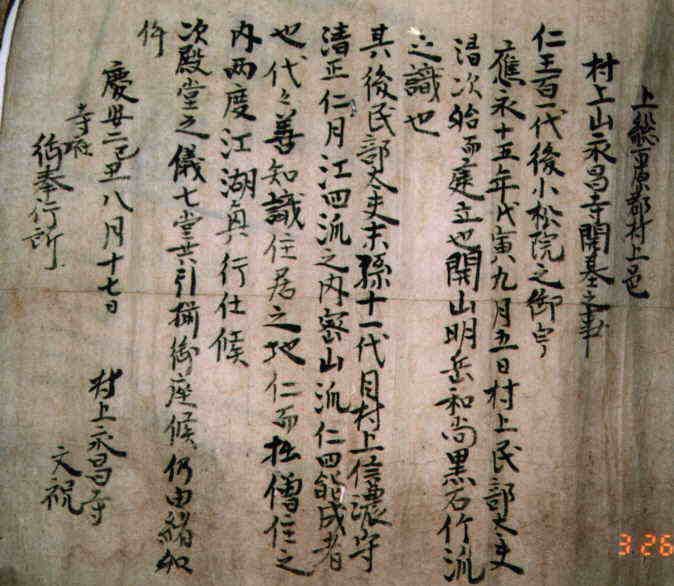 上総市原郡村上邑
村上山永昌寺開基之事
仁王百一代後小松院之御宇
應永十五年戊寅九月五日村上民部太夫
清次始而建立也開山明岳和尚黒石竹流
之識也
其後民部太夫末孫十一代目村上信濃守
清正仁月江四派之内密山派仁四能成者
也代々善知識住居之地仁而拙僧住之
内両度江湖興行仕候
次殿堂之儀七堂共引揃御座候仍由緒如
件
慶安二己丑八月十七日
村上永昌寺
文祝
寺社
御奉行所
3 26